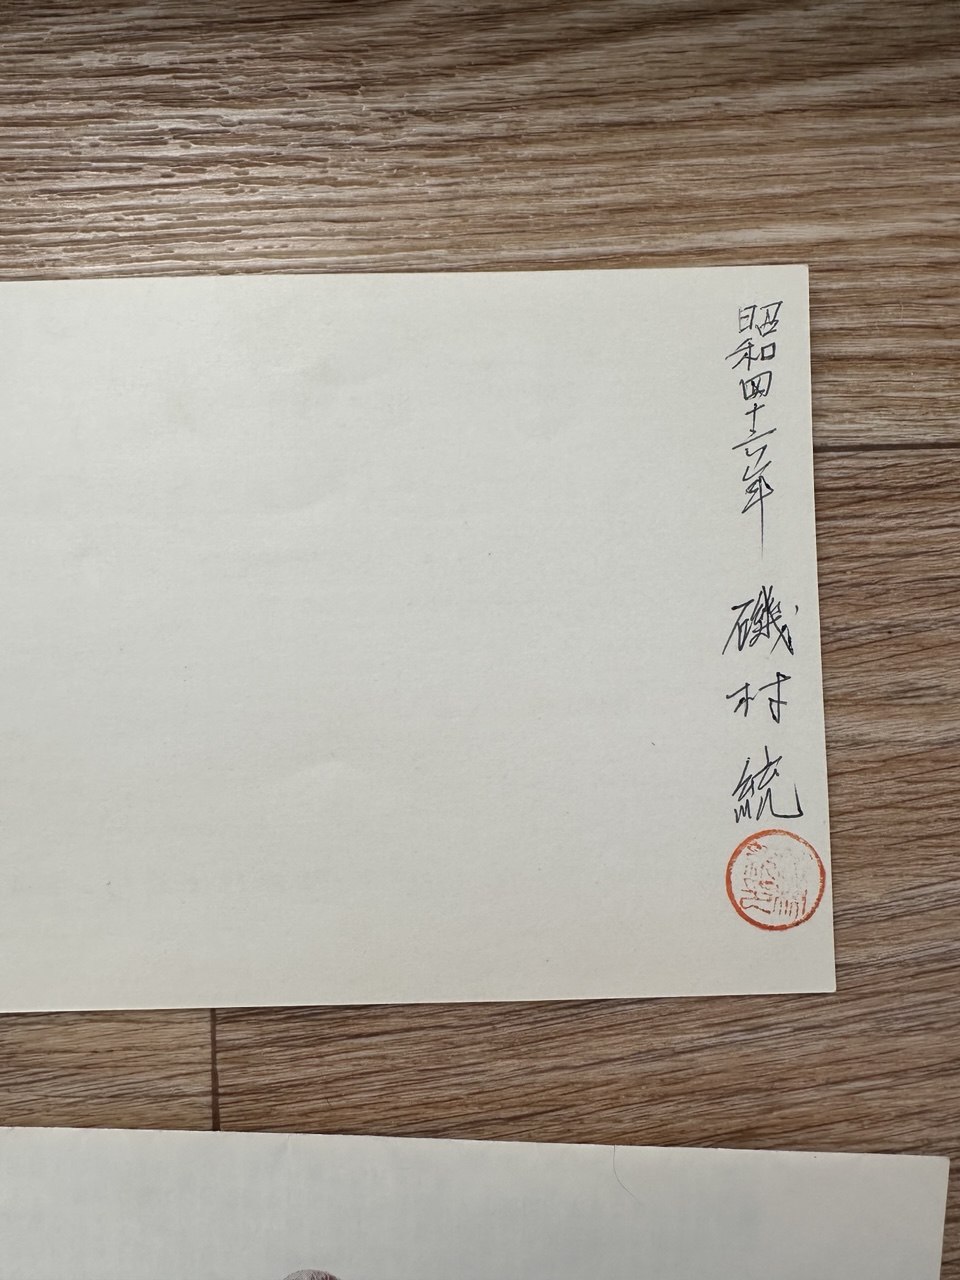 昭和四十六年
磯村統